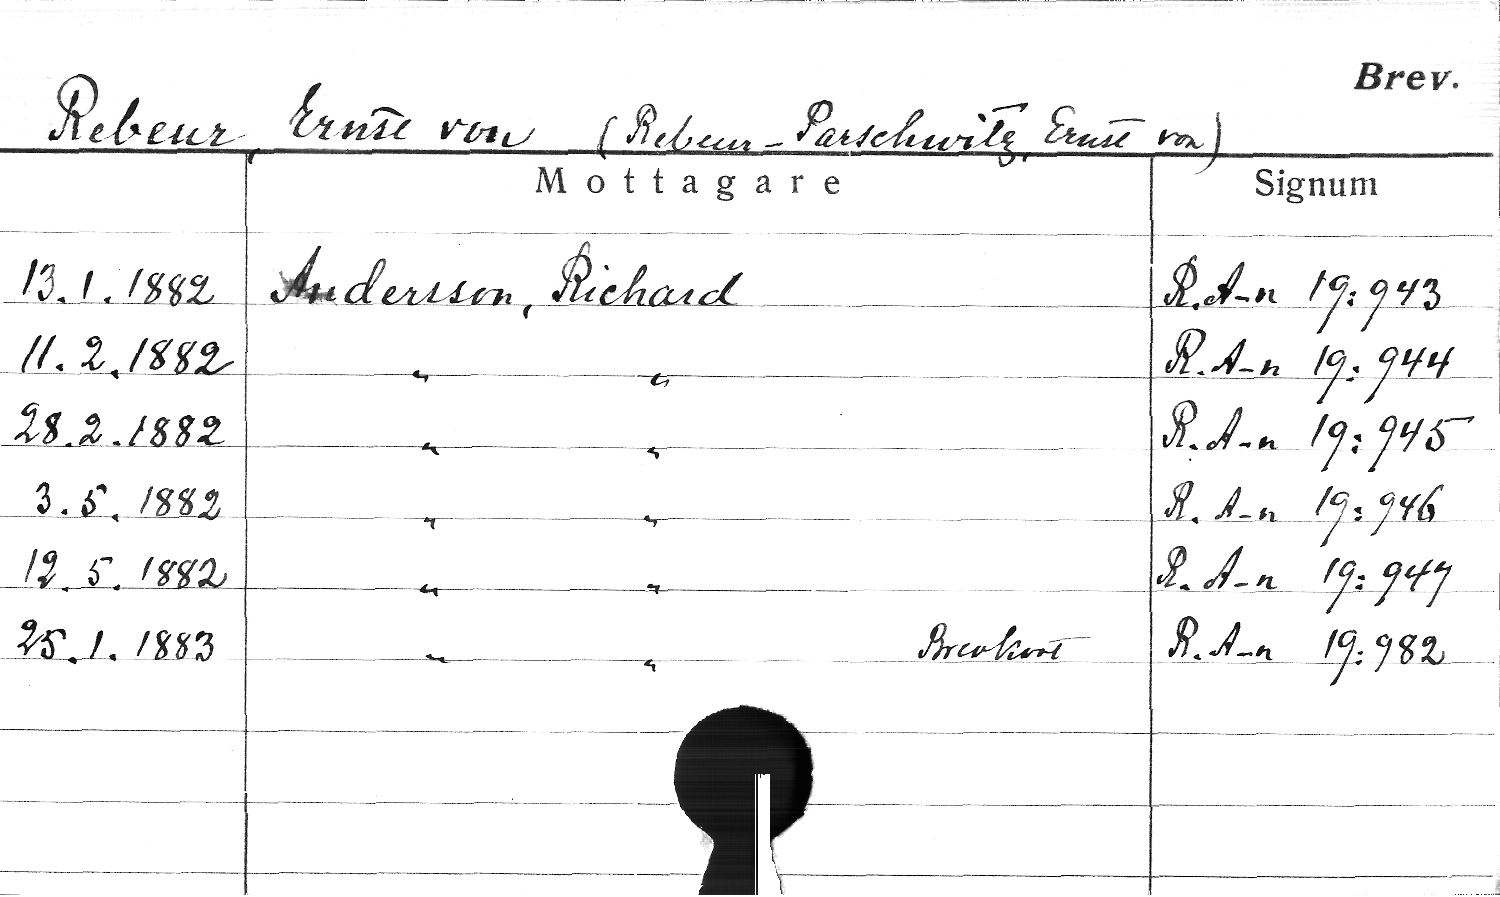 Brev.
Rebeur, Ernst von (Rebeur-Parschwitz, Ernst von)
Mottagare Signum
13.1.1882 Andersson, Richard R.A-n 19:943
11.2.1882 " " R.A-n 19:944
28.2.1882 " " R.A-n 19:945
3.5.1882 " " R.A-n 19:946
12.5.1882 " " R.A-n 19:947
25.1.1883 " " Brevkort R.A-n 19:982